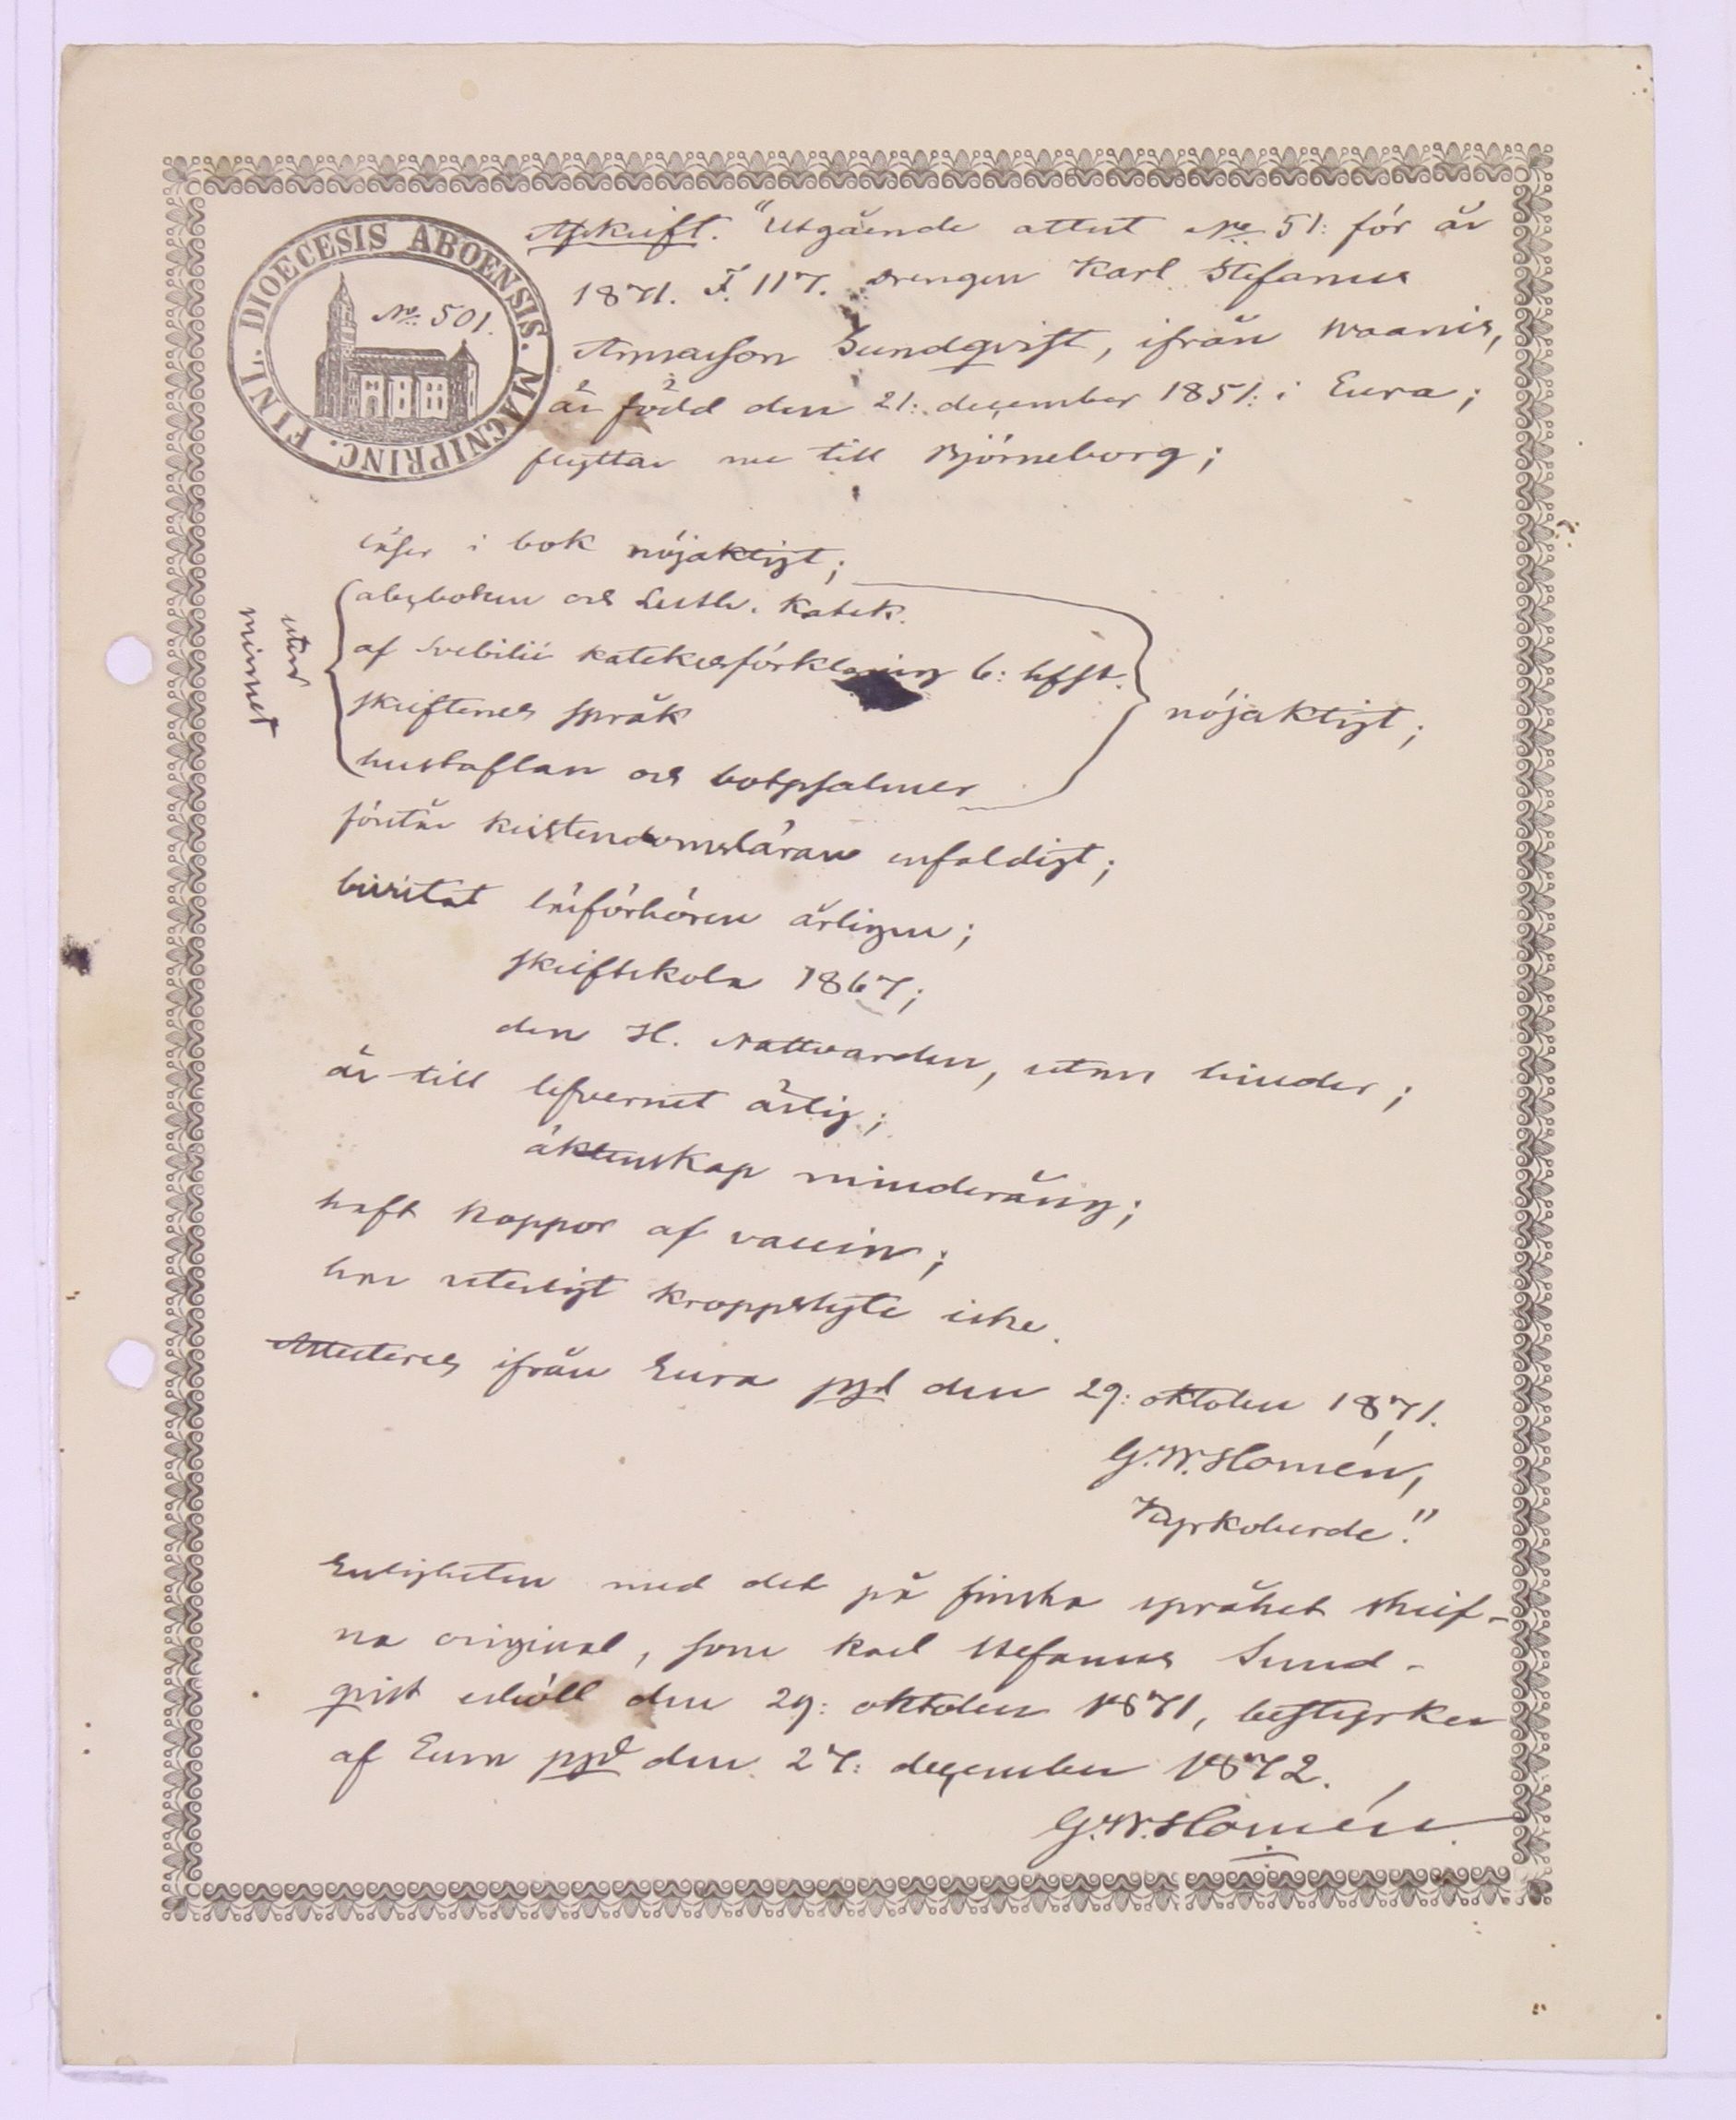 FINL. DIOECESIS ABOENSIS. MAGNIPRINC.
No 501.
Afskrift. "Utgående attest No 51: för år
1871. F. 117. Drengen Karl Stefanus
Annaeson Sundqvist, ifrån Waanis,
är född den 21: december 1851: i Eura;
flyttar nu till Björneborg;
läser i bok nöjaktigt;
utur minnet
abcboken och Luth. Katek.
af Svebilii katekesförklaring 6: hfst.
skriftenes språk
hustaflan och botpsalmer
nöjaktigt;
förstår kristendomsläran enfaldigt;
bivistat läsförhören årligen;
skriftskola 1867;
den H. Nattvarden, utan hinder;
är till lefvernet ärlig;
äktenskap minderårig;
haft koppor af vaccin;
har uterligt kroppslyte icke.
Attesteras ifrån Eura pgd den 29: oktober 1871.
G. W. Homén,
Kyrkoherde."
Enligheten med det på finska språket skrif-
na original, som Karl Stefanus Sund-
qvist erhöll den 29: oktober 1871, bestyrker
af Eura pgd den 27: december 1872.
G. W. Homén